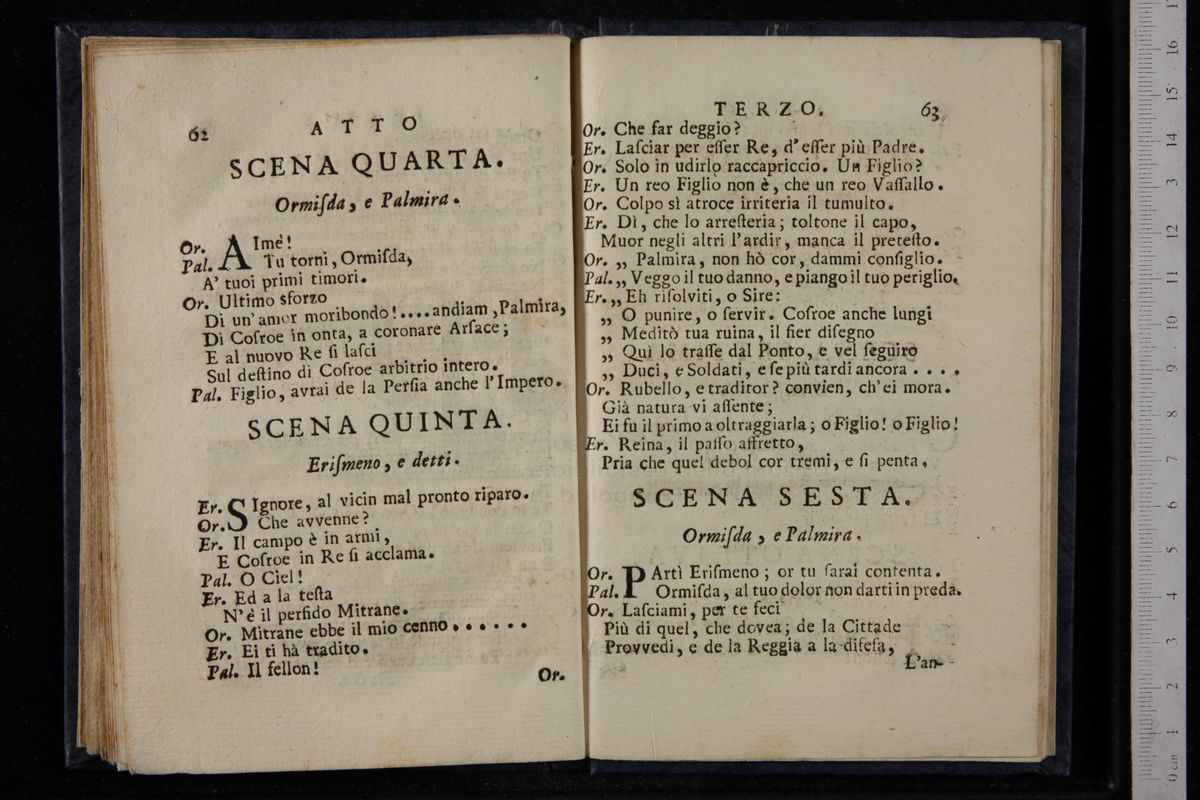 62
ATTO
SCENA QUARTA.
Ormiſda, e Palmira.
Or. AImè!
Pal. Tu torni, Ormiſda,
A' tuoi primi timori.
Or. Ultimo sforzo
Di un' amor moribondo!....andiam, Palmira,
Di Coſroe in onta, a coronare Arſace;
E al nuovo Re ſi laſci
Sul deſtino di Coſroe arbitrio intero.
Pal. Figlio, avrai de la Perſia anche l'Impero.
SCENA QUINTA.
Eriſmeno, e detti.
Er. SIgnore, al vicin mal pronto riparo.
Or. Che avvenne?
Er. Il campo è in armi,
E Coſroe in Re ſi acclama.
Pal. O Ciel!
Er. Ed a la teſta
N'è il perfido Mitrane.
Or. Mitrane ebbe il mio cenno......
Er. Ei ti hà tradito.
Pal. Il fellon!
Or.
TERZO.
63
Or. Che far deggio?
Er. Laſciar per eſſer Re, d'eſſer più Padre.
Or. Solo in udirlo raccapriccio. Un Figlio?
Er. Un reo Figlio non è, che un reo Vaſſallo.
Or. Colpo sì atroce irriteria il tumulto.
Er. Dì, che lo arreſteria; toltone il capo,
Muor negli altri l'ardir, manca il preteſto.
Or. „ Palmira, non hò cor, dammi conſiglio.
Pal. „ Veggo il tuo danno, e piango il tuo periglio.
Er. „ Eh riſolviti, o Sire:
„ O punire, o ſervir. Coſroe anche lungi
„ Meditò tua ruina, il fier diſegno
„ Quì lo traſſe dal Ponto, e vel ſeguiro
„ Duci, e Soldati, e ſe più tardi ancora....
Or. Rubello, e traditor? convien, ch'ei mora.
Già natura vi aſſente;
Ei fu il primo a oltraggiarla; o Figlio! o Figlio!
Er. Reina, il paſſo affretto,
Pria che quel debol cor tremi, e ſi penta.
SCENA SESTA.
Ormiſda, e Palmira.
Or. PArtì Eriſmeno; or tu ſarai contenta.
Pal. Ormiſda, al tuo dolor non darti in preda.
Or. Laſciami, per te feci
Più di quel, che dovea; de la Cittade
Provvedi, e de la Reggia a la difeſa,
L'an-
0 cm 1 2 3 4 5 6 7 8 9 10 11 12 13 14 15 16 17